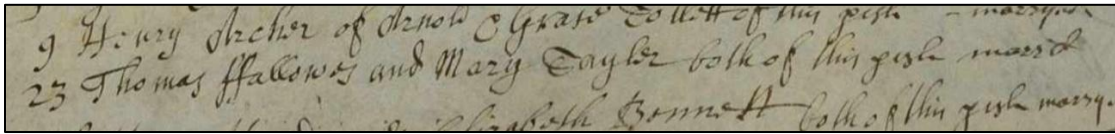 9 Henry Archer of Arnold & Grase Collett of this pish - marryed
23 Thomas ffallowes and Mary Tayler both of this pish marrd
Elizabeth Bennett both of this pish marry